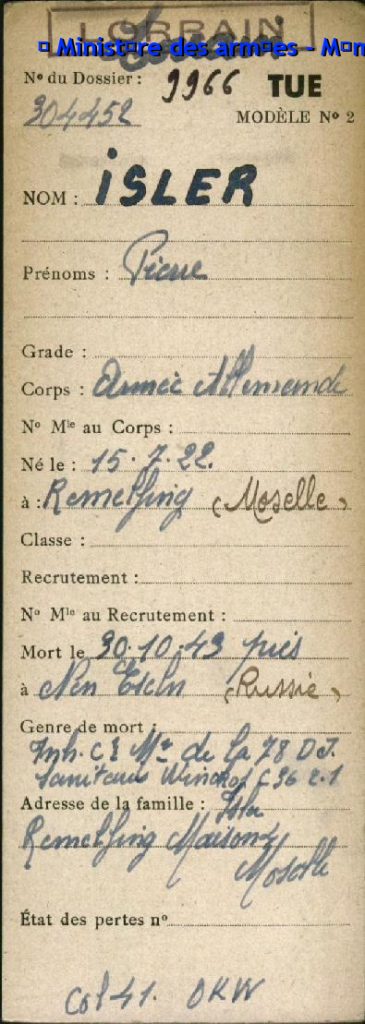 LORRAIN
© Ministère des armées - Mém
Nº du Dossier : 9966 TUE
304452
MODÈLE Nº 2
NOM : ISLER
Prénoms : Pierre
Grade :
Corps : Armée Allemande
Nº Mle au Corps :
Né le : 15.7.22.
à : Remelfing (Moselle)
Classe :
Recrutement :
Nº Mle au Recrutement :
Mort le 30.10.43 près
à (Russie)
Genre de mort :
Inh. de la 78 D.I.
Adresse de la famille :
Remelfing Maison 4
Moselle
État des pertes nº
Col 41. OKW